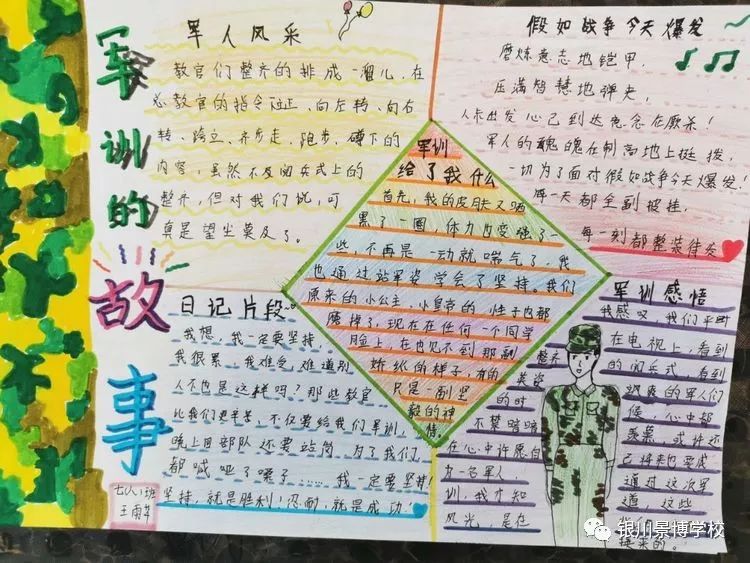 军训的故事
军人风采
教官们整齐的排成一溜儿,在
总教官的指令立正、向左转、向右
转、跨立、齐步走、跑步、蹲下的
内容,虽然不及阅兵式上的
整齐,但对我们说,可
真是望尘莫及了。
假如战争今天爆发
磨炼意志地铠甲,
压满智慧地弹夹,
人未出发心已到达
军人的魂魄在制高地上挺拔,
一切为了面对假如战争今天爆发!
每一天都全副披挂,
每一刻都整装待发
军训
给了我什么
首先,我的皮肤又晒
黑了一圈,体力也变强了一
些,不再是一动就喘气了。我
也通过站军姿学会了坚持。我们
原来的小公主,小皇帝的性子也都
磨掉了,现在在任何一个同学
脸上,在也见不到那副
娇纵的样子,有的
只是一副坚
毅的神
情。
日记片段
我想,我一定要坚持,
我很累、我难受,难道别
人不也是这样吗?那些教官
比我们更辛苦,不仅要给我们军训,
晚上回部队还要站岗,为了我们,
都喊哑了嗓子……我一定要坚持!
坚持,就是胜利!忍耐,就是成功
七八1班
王雨
军训感悟
我感叹,我们平时
在电视上,看到
的阅兵式,看到
飒爽的军人们
整齐
英姿
的时
候,心中都
不禁暗暗
羡慕,或许还
在心中许愿自
己将来也要成
为一名军人,
通过这次军
训,我才知
道,这些
风光,是在
换来的。
银川景博学校